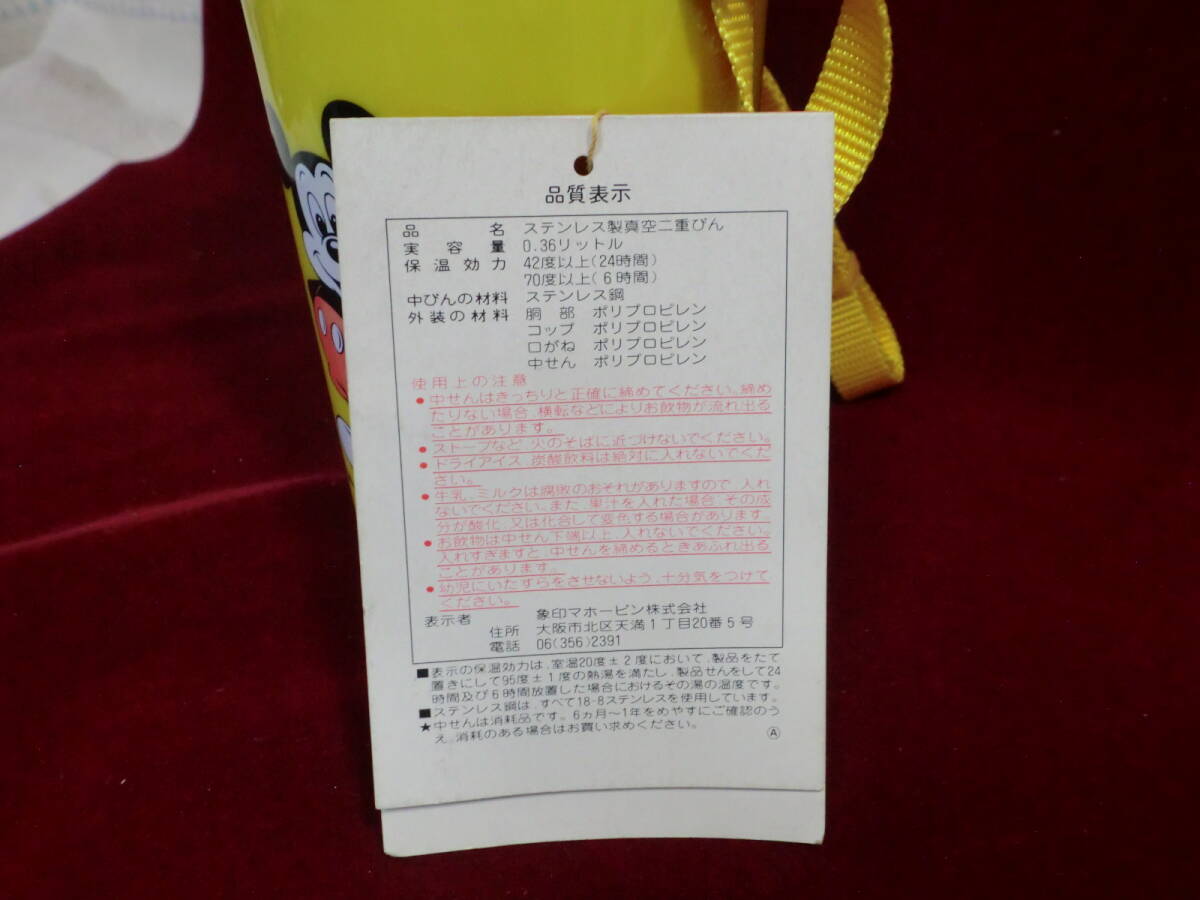 品質表示
品名 ステンレス製真空二重びん
実容量 0.36リットル
保温効力 42度以上(24時間)
70度以上(6時間)
中びんの材料 ステンレス鋼
外装の材料 胴部 ポリプロピレン
コップ ポリプロピレン
口がね ポリプロピレン
中せん ポリプロピレン
使用上の注意
●中せんはきっちりと正確に締めてください。締め
たりない場合、横転などによりお飲物が流れ出る
ことがあります。
●ストーブなど、火のそばに近づけないでください。
●ドライアイス、炭酸飲料は絶対に入れないでくだ
さい。
●牛乳、ミルクは腐敗のおそれがありますので、入れ
ないでください。また、果汁を入れた場合、その成
分が酸化、又は化合して変色する場合があります。
●お飲物は中せん下端以上、入れないでください。
入れすぎますと、中せんを締めるときあふれ出る
ことがあります。
●幼児にいたずらをさせないよう、十分気をつけて
ください。
表示者 象印マホービン株式会社
住所 大阪市北区天満1丁目20番5号
電話 06(356)2391
■表示の保温効力は、室温20度±2度において、製品をたて
置きにして95度±1度の熱湯を満たし、製品せんをして24
時間及び6時間放置した場合におけるその湯の温度です。
■ステンレス鋼は、すべて18-8ステンレスを使用しています。
★中せんは消耗品です。6ヵ月〜1年をめやすにご確認のう
え、消耗のある場合はお買い求めください。
Ⓐ